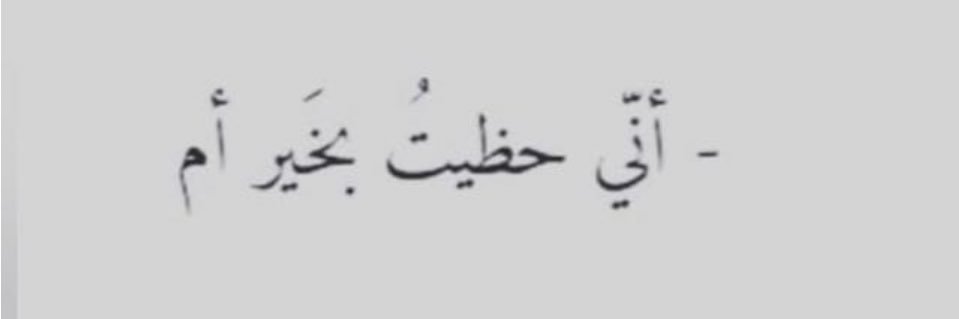 - أنّي حظيتُ بخَير أم